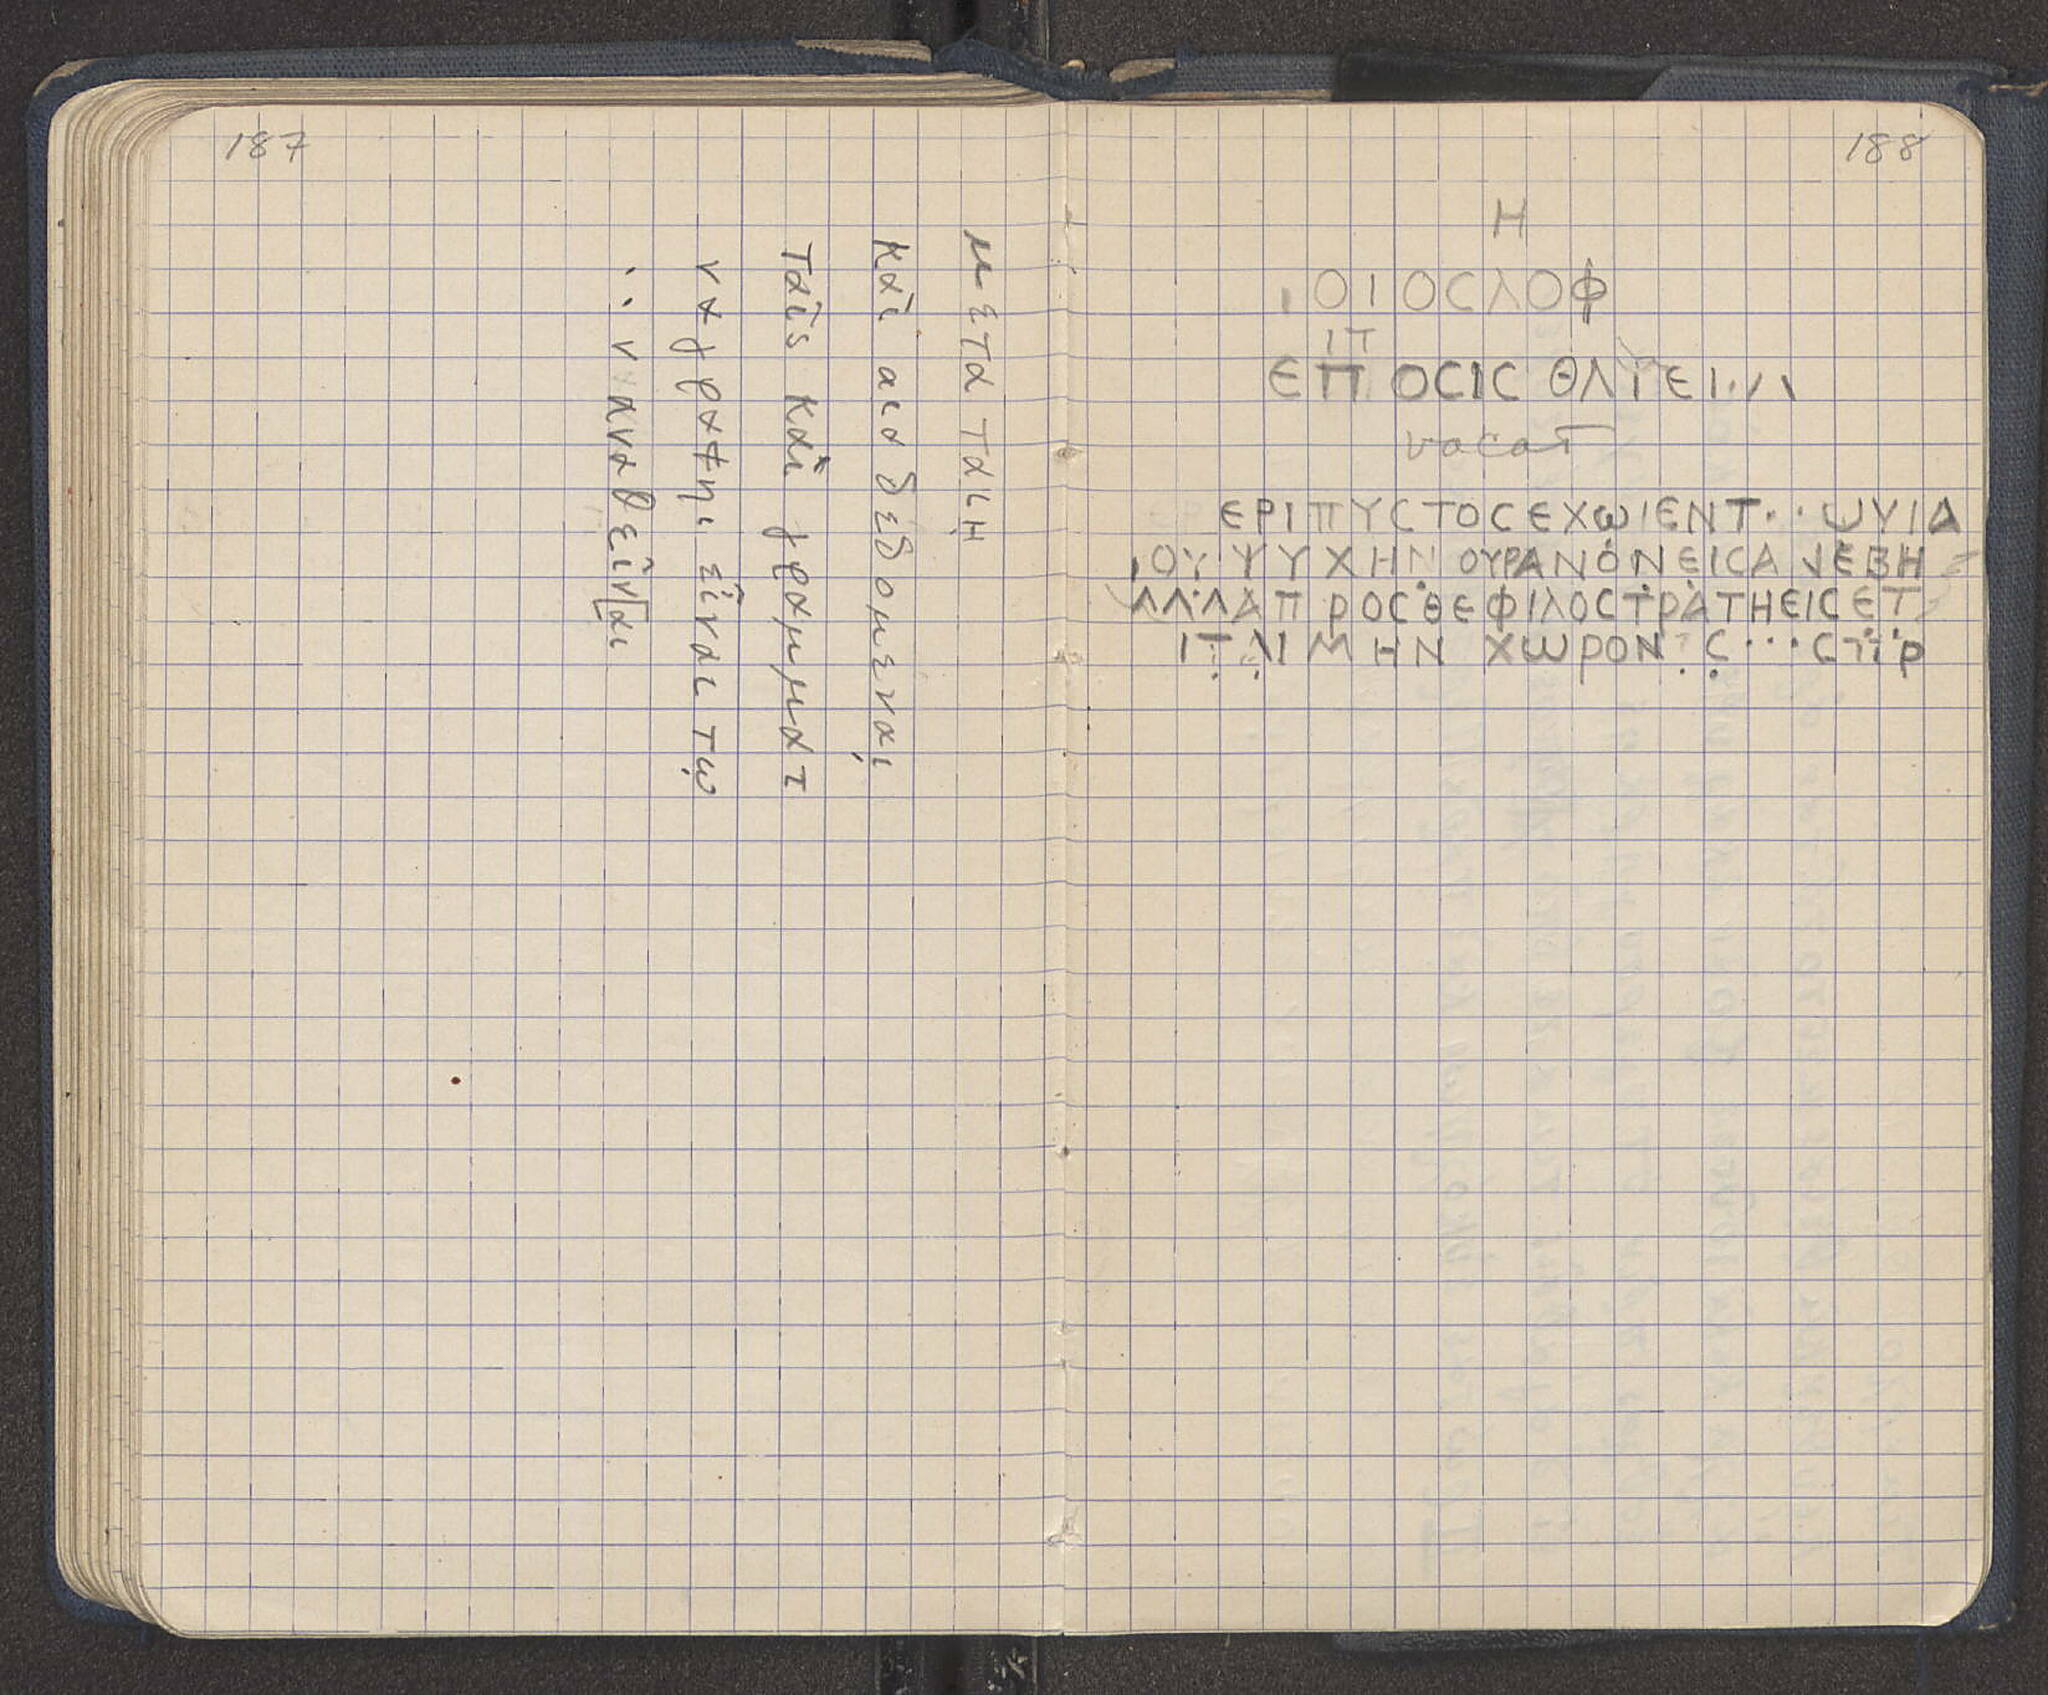 187
μετα ταιη
και αια δεδομεναι
ταῖς καὶ γραμματ
ναγραφηι εἶναι τω
· · ν αναθεῖν[αι
188
Η
ΟΙΟϹΛΟΦ
ΙΤ
ΕΠ ΟϹΙϹ ΘΛΤΕΙ
vacat
ΕΡΙΠΥϹΤΟϹΕΧωΙΕΝΤ··ωΥΙΔ
ΟΥΨΥΧΗΝ ΟΥΡΑΝΟΝΕΙϹΑΝΕΒΗ
ΛΛΛΑΠΡΟϹΘΕΦΙΛΟϹΤΡΑΤΗΕΙϹΕΤ
ΙΤΛΙΜΗΝ ΧωΡΟΝ Ϲ···ϹΠΡ